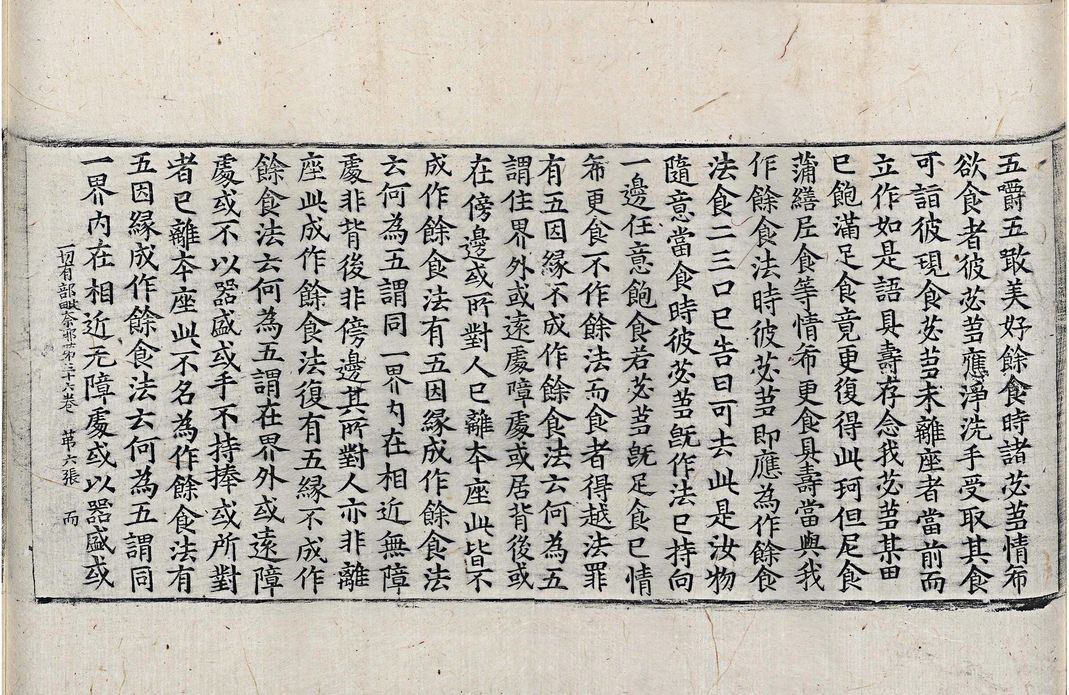 五嚼五噉美好餘食時諸苾芻情希
欲食者彼苾芻應淨洗手受取其食
可詣彼現食苾芻未離座者當前而
立作如是語具壽存念我苾芻某田
已飽滿足食竟更復得此珂但尼食
蒲繕𡰱食等情希更食具壽當與我
作餘食法時彼苾芻即應為作餘食
法食二三口已告曰可去此是汝物
隨意當食時彼苾芻旣作法已持向
一邊任意飽食若苾芻旣足食已情
希更食不作餘法而食者得越法罪
有五因緣不成作餘食法云何為五
謂住界外或遠處障處或居背後或
在傍邊或所對人已離本座此皆不
成作餘食法有五因緣成作餘食法
云何為五謂同一界內在相近無障
處非背後非傍邊其所對人亦非離
座此成作餘食法復有五緣不成作
餘食法云何為五謂在界外或遠障
處或不以器盛或手不持捧或所對
者已離本座此不名為作餘食法有
五因緣成作餘食法云何為五謂同
一切有部毗奈耶第三十六卷 第六張 而
一界內在相近无障處或以器盛或